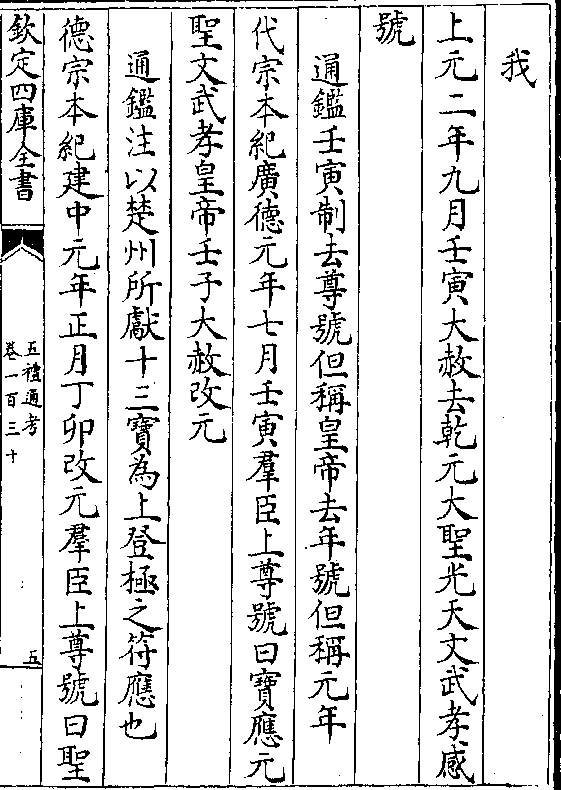 我
上元二年九月壬寅大赦去乾元大聖光天文武孝感
號
通鑑壬寅制去尊號但稱皇帝去年號但稱元年
代宗本紀廣德元年七月壬寅羣臣上尊號曰寶應元
聖文武孝皇帝壬子大赦改元
通鑑注以楚州所獻十三寶為上登極之符應也
德宗本紀建中元年正月丁卯改元羣臣上尊號曰聖
欽定四庫全書
五禮通考
卷一百三十
五